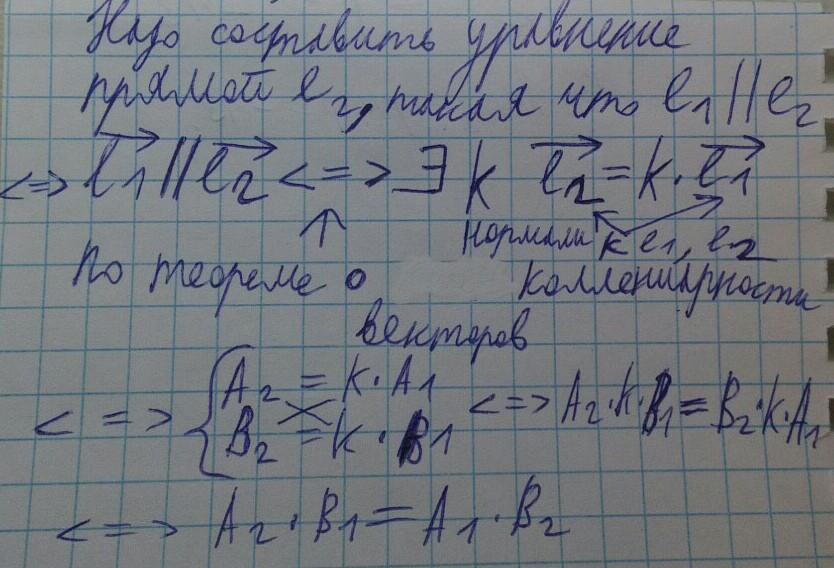 Надо составить уравнение
прямой l2, такая что l1 || l2
<=> l1 || l2 <=> ∃ k l2 = k · l1
нормали к l1, l2
по теореме о коллениарности
векторов
<=> { A2 = k · A1 <=> A2 · k · B1 = B2 · k · A1
B2 = k · B1
<=> A2 · B1 = A1 · B2